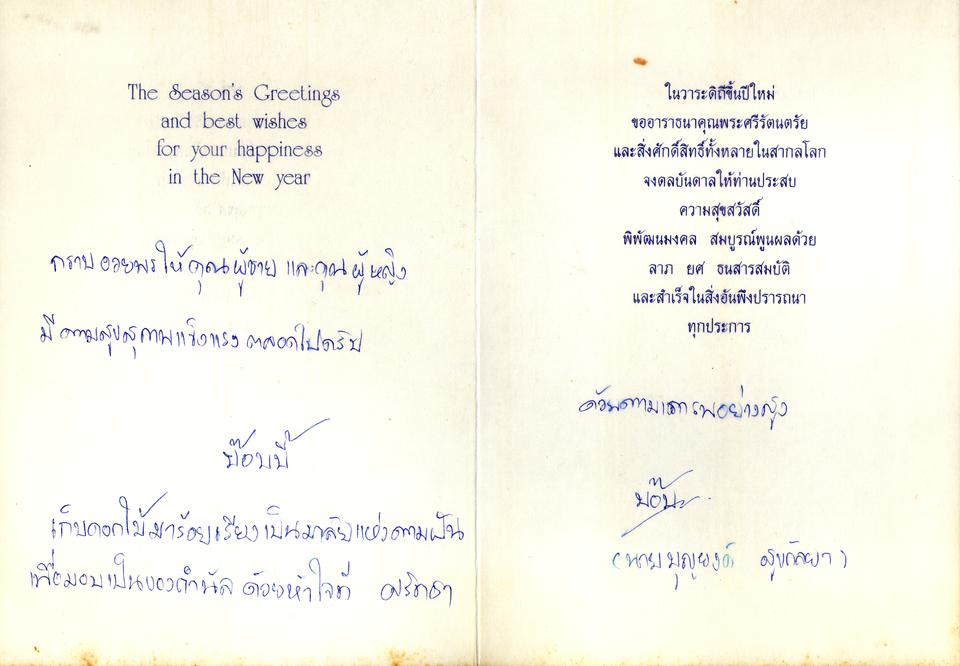 The Season's Greetings
and best wishes
for your happiness
in the New year
กราบอวยพรให้คุณผู้ชาย และคุณผู้หญิง
มีความสุขสุขภาพแข็งแรง ตลอดไปครับ
ป๊อบบี้
เก็บดอกไม้มาร้อยเรียงเป็นมาลัยแห่งความฝัน
เพื่อมอบเป็นของกำนัล ด้วยหัวใจที่
ในวาระดิถีขึ้นปีใหม่
ขออาราธนาคุณพระศรีรัตนตรัย
และสิ่งศักดิ์สิทธิ์ทั้งหลายในสากลโลก
จงดลบันดาลให้ท่านประสบ
ความสุขสวัสดิ์
พิพัฒนมงคล สมบูรณ์พูนผลด้วย
ลาภ ยศ ธนสารสมบัติ
และสำเร็จในสิ่งอันพึงปรารถนา
ทุกประการ
ด้วยความเคารพอย่างสูง
(นายบุญยงค์ สุขกัลยา)